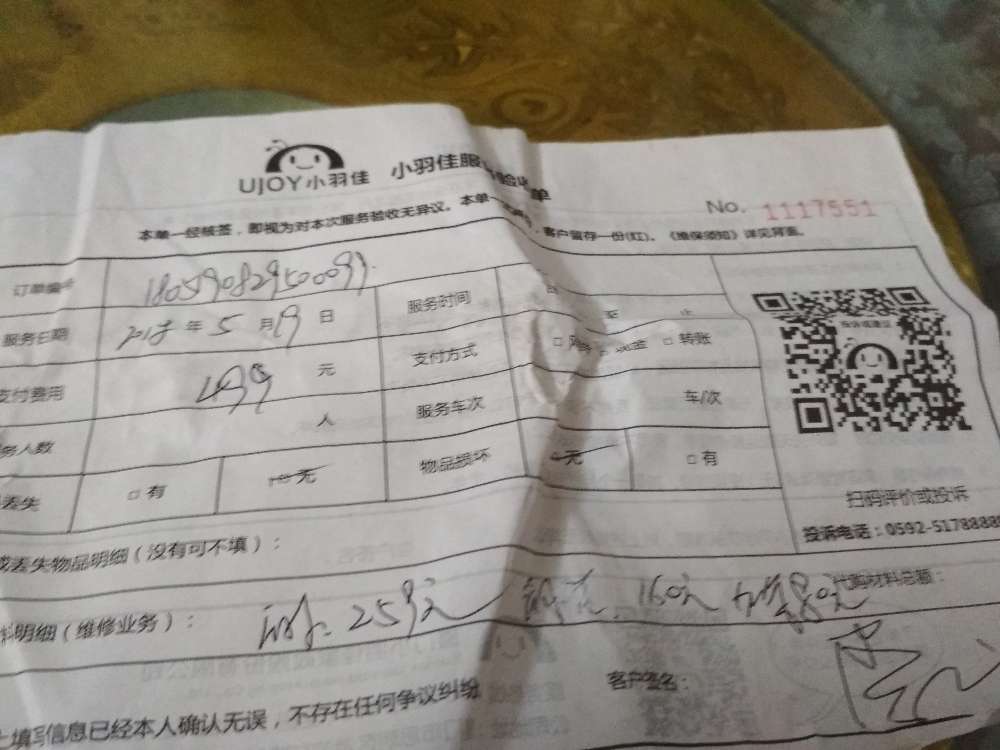 UJOY小羽佳 小羽佳服 验收单
No. 1117551
本单一经核签，即视为对本次服务验收无异议。本单一 ，客户留存一份(红)。《维保须知》详见背面。
订单编号
服务时间 至 止
投诉或建议
服务日期 年 5 月 19 日
支付方式 □ □现金 □ 转账
支付费用 499 元
服务车次 车/次
务人数 人
丢失 □ 有 □ 无 物品损坏 □ 无 □ 有
扫码评价或投诉
投诉电话：0592-5178888
或丢失物品明细（没有可不填）：
料明细（维修业务）： 259元 160元 80元 代购材料总额：
客户签名：
上填写信息已经本人确认无误，不存在任何争议纠纷